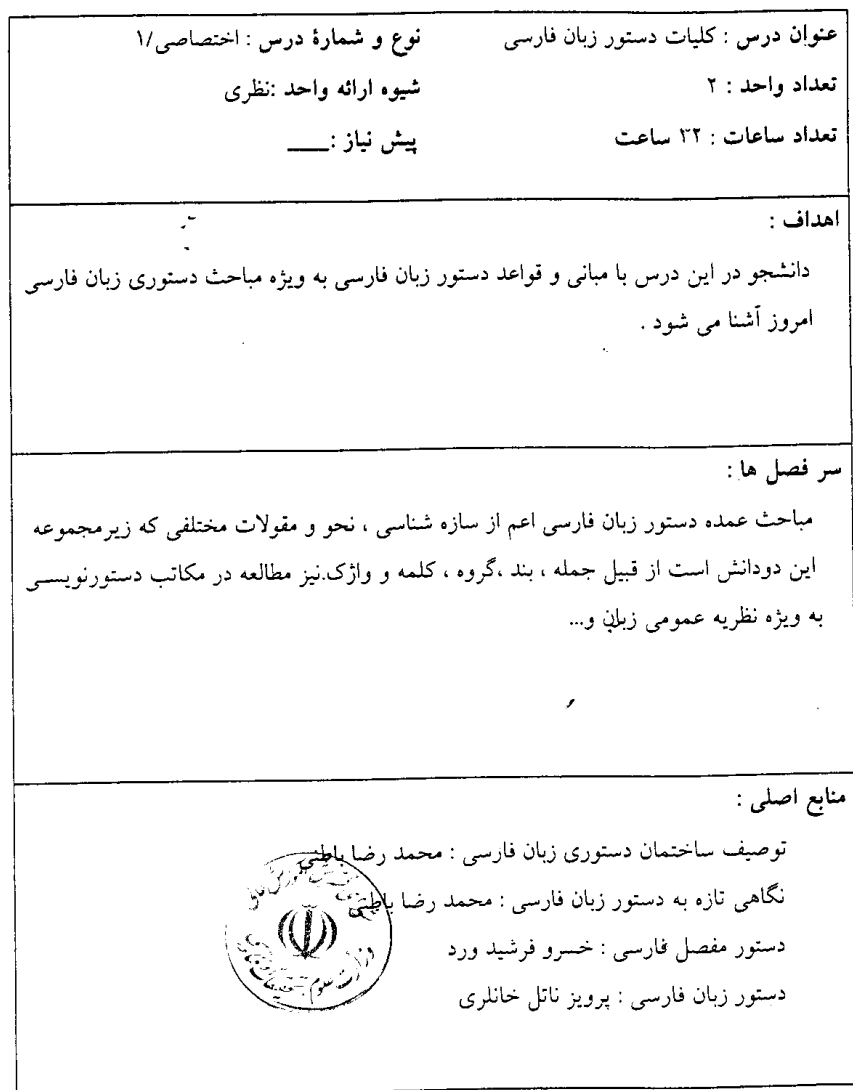 عنوان درس : کلیات دستور زبان فارسی نوع و شمارهٔ درس : اختصاصی/۱
تعداد واحد : ۲ شیوه ارائه واحد :نظری
تعداد ساعات : ۳۲ ساعت پیش نیاز :ـــــ
اهداف :
دانشجو در این درس با مبانی و قواعد دستور زبان فارسی به ویژه مباحث دستوری زبان فارسی
امروز آشنا می شود .
سر فصل ها :
مباحث عمده دستور زبان فارسی اعم از سازه شناسی ، نحو و مقولات مختلفی که زیرمجموعه
این دودانش است از قبیل جمله ، بند ،گروه ، کلمه و واژک.نیز مطالعه در مکاتب دستورنویسی
به ویژه نظریه عمومی زبان و...
منابع اصلی :
توصیف ساختمان دستوری زبان فارسی : محمد رضا باطنی
نگاهی تازه به دستور زبان فارسی : محمد رضا باطنی
دستور مفصل فارسی : خسرو فرشید ورد
دستور زبان فارسی : پرویز ناتل خانلری
وزارت علوم تحقیقات و فناوری